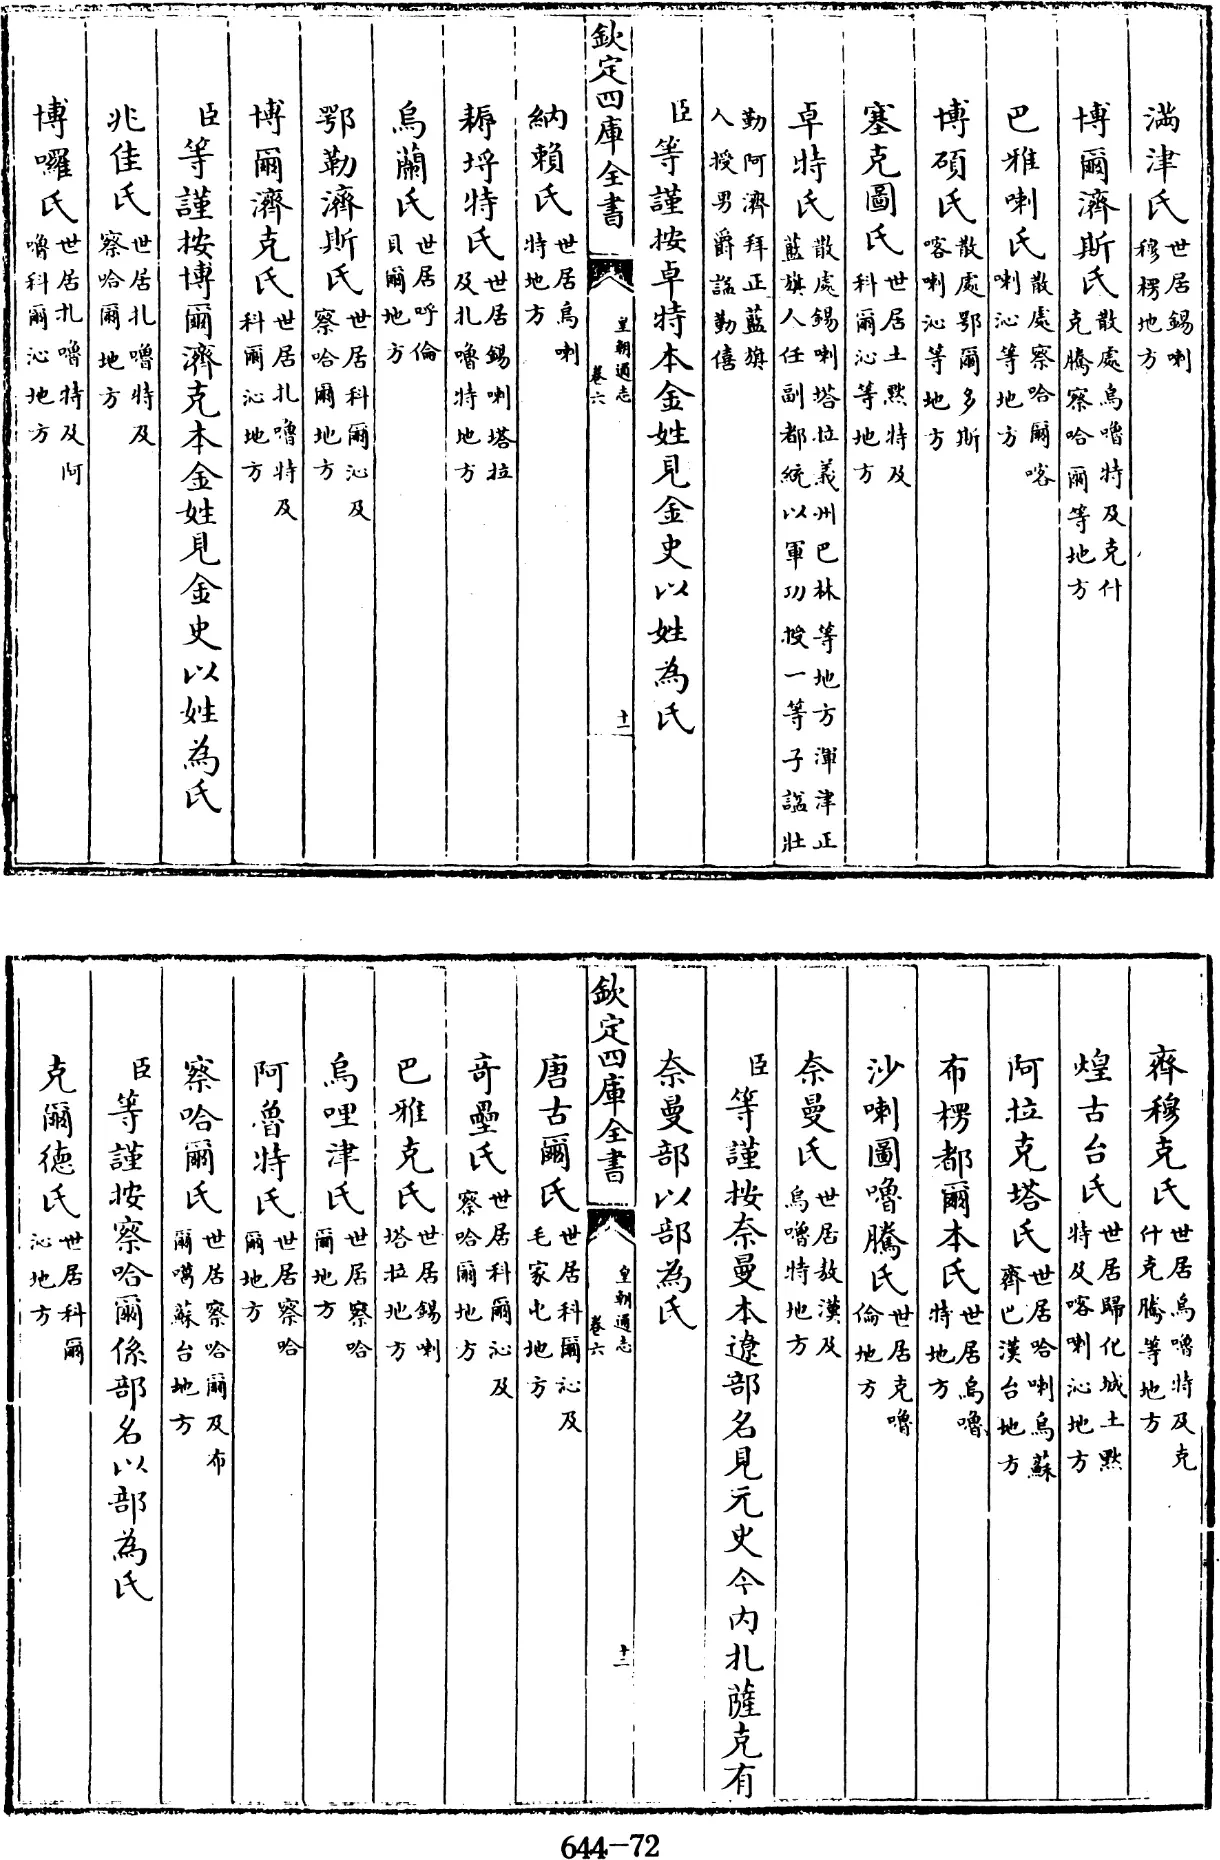 滿津氏世居錫喇穆楞地方
博爾濟斯氏散處烏嚕特及克什克騰察哈爾等地方
巴雅喇氏散處察哈爾喀喇沁等地方
博碩氏散處鄂爾多斯喀喇沁等地方
塞克圖氏世居土默特及科爾沁等地方
卓特氏散處錫喇塔拉義州巴林等地方渾津正藍旗人任副都統以軍功授一等子諡壯
勤阿濟拜正藍旗人授男爵諡勤僖
臣等謹按卓特本金姓見金史以姓為氏
欽定四庫全書
皇朝通志
卷六
十一
納賴氏世居烏喇特地方
耨埒特氏世居錫喇塔拉及扎嚕特地方
烏蘭氏世居呼倫貝爾地方
鄂勒濟斯氏世居科爾沁及察哈爾地方
博爾濟克氏世居扎嚕特及科爾沁地方
臣等謹按博爾濟克本金姓見金史以姓為氏
兆佳氏世居扎嚕特及察哈爾地方
博囉氏世居扎嚕特及阿嚕科爾沁地方
齊穆克氏世居烏嚕特及克什克騰等地方
煌古台氏世居歸化城土默特及喀喇沁地方
阿拉克塔氏世居哈喇烏蘇齊巴漢台地方
布楞都爾本氏世居烏嚕特地方
沙喇圖嚕騰氏世居克嚕倫地方
奈曼氏世居敖漢及烏嚕特地方
臣等謹按奈曼本遼部名見元史今內扎薩克有
奈曼部以部為氏
欽定四庫全書
皇朝通志
卷六
十二
唐古爾氏世居科爾沁及毛家屯地方
奇壘氏世居科爾沁及察哈爾地方
巴雅克氏世居錫喇塔拉地方
烏哩津氏世居察哈爾地方
阿魯特氏世居察哈爾地方
察哈爾氏世居察哈爾及布爾噶蘇台地方
臣等謹按察哈爾係部名以部為氏
克爾德氏世居科爾沁地方
644-72